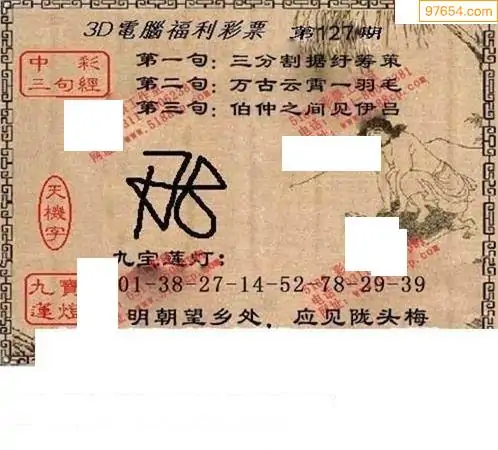 97654.com
3D電腦福利彩票 第127期
中彩
三句經
第一句：三分割据纡筹策
第二句：万古云霄一羽毛
第三句：伯仲之间见伊吕
天機字
九宝莲灯：
九寶蓮燈
01-38-27-14-52-78-29-39
明朝望乡处，应见陇头梅